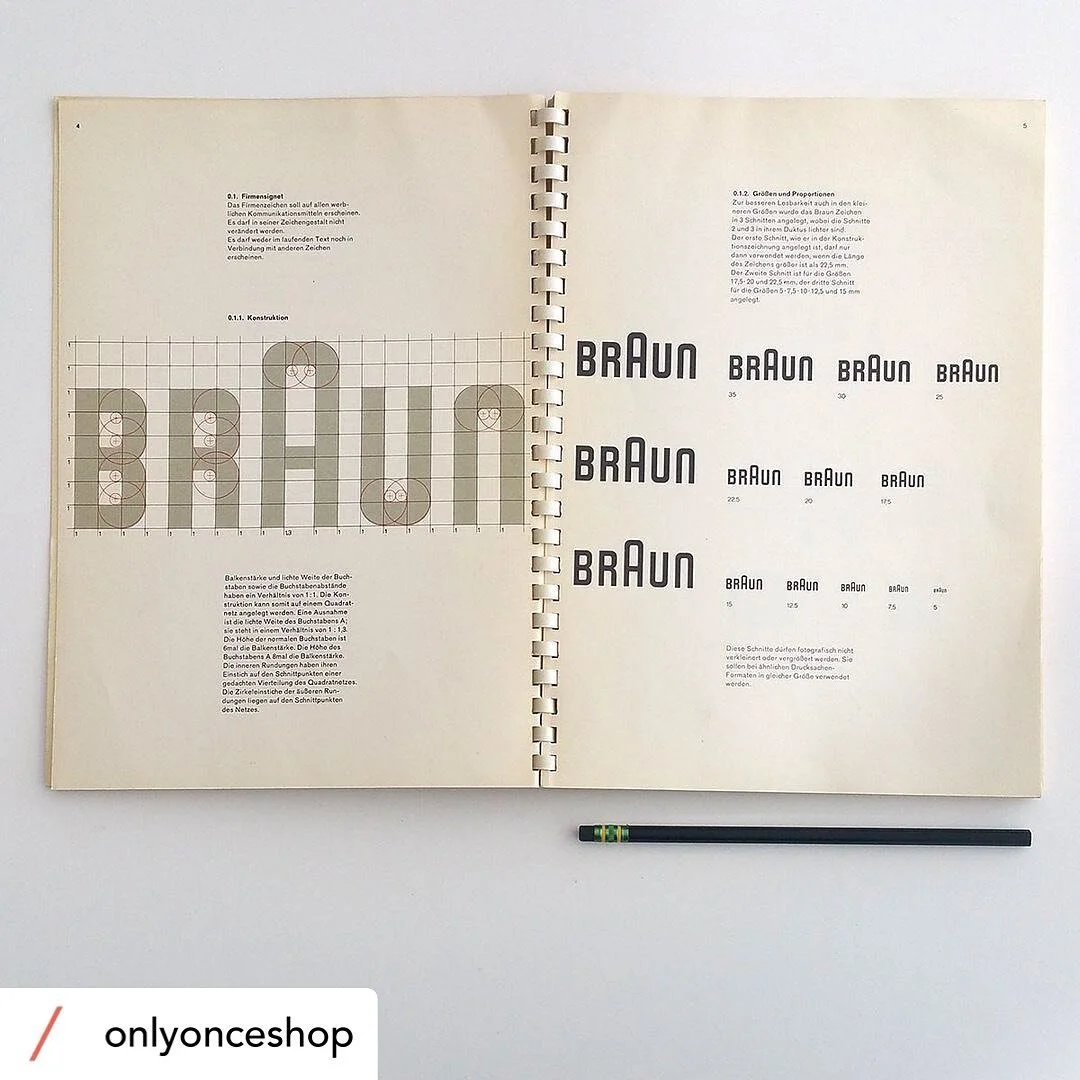 4
0.1. Firmensignet
Das Firmenzeichen soll auf allen werb-
lichen Kommunikationsmitteln erscheinen.
Es darf in seiner Zeichengestalt nicht
verändert werden.
Es darf weder im laufenden Text noch in
Verbindung mit anderen Zeichen
erscheinen.
0.1.1. Konstruktion
BRAUN
1 1 1 1 1 1 1 1 1 1,3 1 1 1 1 1 1 1 1 1
Balkenstärke und lichte Weite der Buch-
staben sowie die Buchstabenabstände
haben ein Verhältnis von 1:1. Die Kon-
struktion kann somit auf einem Quadrat-
netz angelegt werden. Eine Ausnahme
ist die lichte Weite des Buchstabens A;
sie steht in einem Verhältnis von 1 : 1,3.
Die Höhe der normalen Buchstaben ist
6mal die Balkenstärke. Die Höhe des
Buchstabens A 8mal die Balkenstärke.
Die inneren Rundungen haben ihren
Einstich auf den Schnittpunkten einer
gedachten Vierteilung des Quadratnetzes.
Die Zirkeleinstiche der äußeren Run-
dungen liegen auf den Schnittpunkten
des Netzes.
5
0.1.2. Größen und Proportionen
Zur besseren Lesbarkeit auch in den klei-
neren Größen wurde das Braun Zeichen
in 3 Schnitten angelegt, wobei die Schnitte
2 und 3 in ihrem Duktus lichter sind.
Der erste Schnitt, wie er in der Konstruk-
tionszeichnung angelegt ist, darf nur
dann verwendet werden, wenn die Länge
des Zeichens größer ist als 22,5 mm.
Der Zweite Schnitt ist für die Größen
17,5-20 und 22,5 mm, der dritte Schnitt
für die Größen 5-7,5-10-12,5 und 15 mm
angelegt.
BRAUN BRAUN BRAUN BRAUN
35 30 25
BRAUN BRAUN BRAUN BRAUN
22,5 20 17,5
BRAUN BRAUN BRAUN BRAUN BRAUN BRAUN
15 12,5 10 7,5 5
Diese Schnitte dürfen fotografisch nicht
verkleinert oder vergrößert werden. Sie
sollen bei ähnlichen Drucksachen-
Formaten in gleicher Größe verwendet
werden.
onlyonceshop